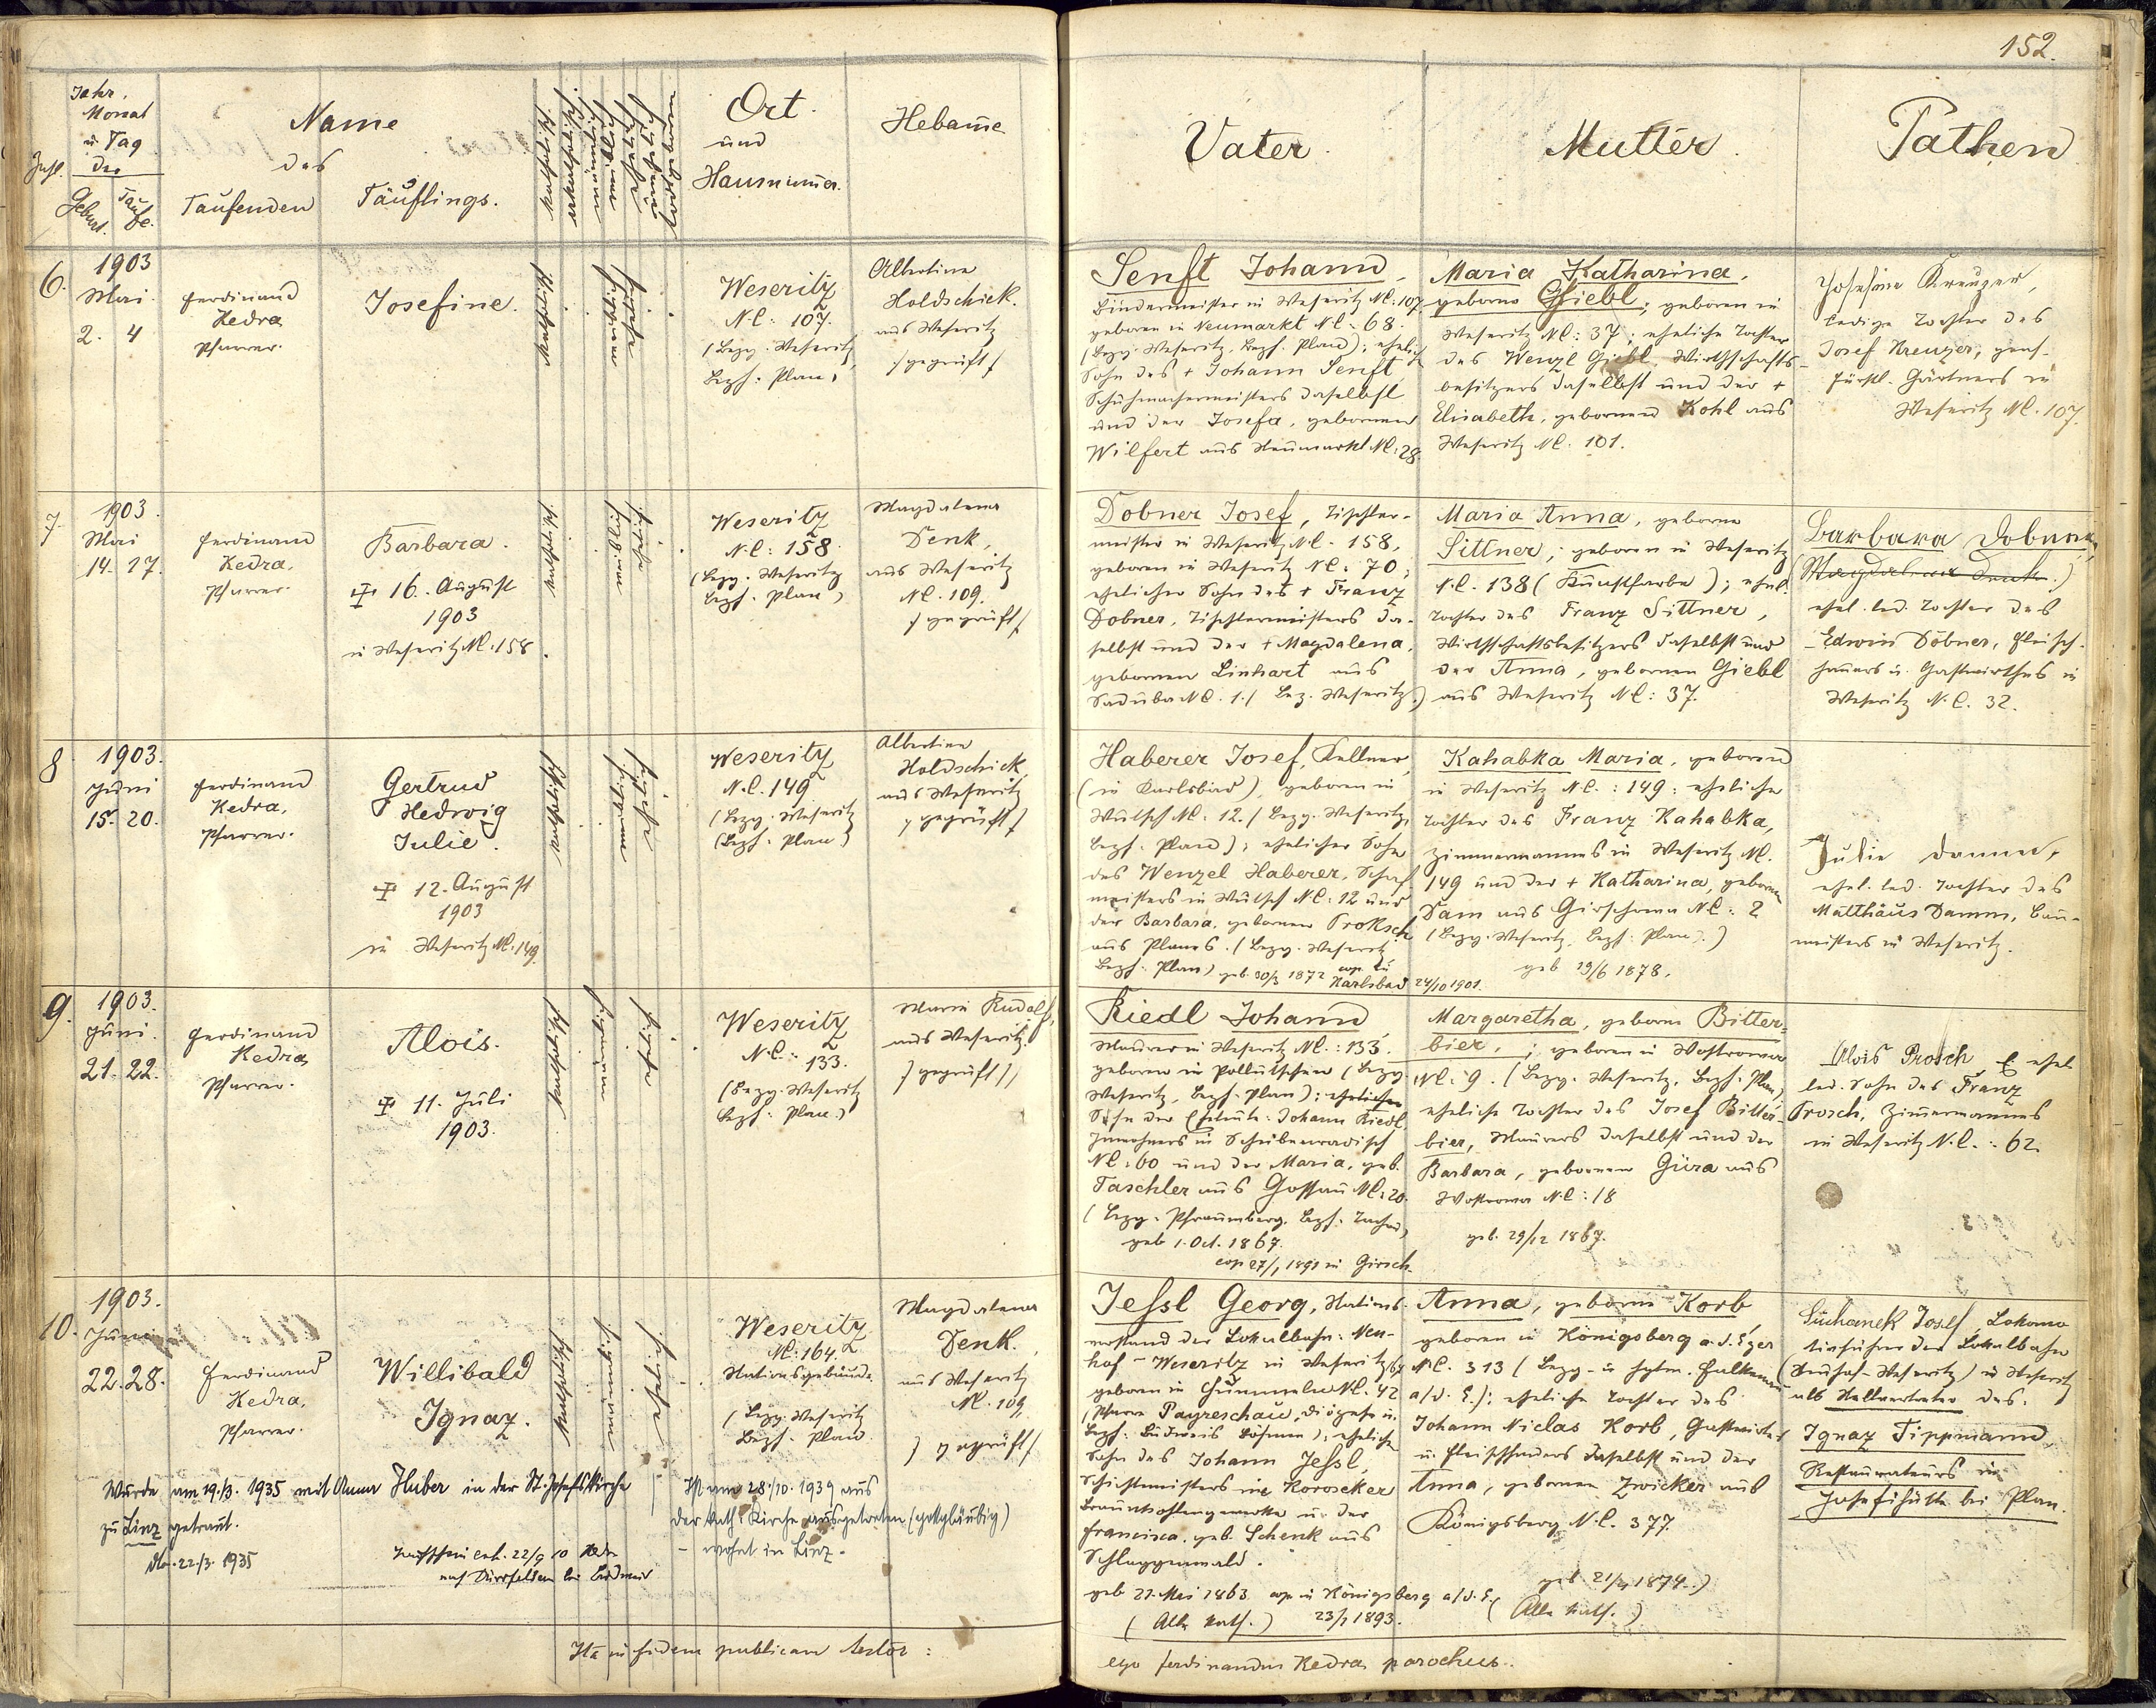 152.
Jahr,
Monat
u. Tag
der
Zahl.
Geburt.
Taufe.
Name
des
Taufenden
Täuflings.
Ort
und
Hausnummer.
Hebamme
Vater.
Mutter.
Pathen
6.
1903
Mai
2. 4
Ferdinand
Kedra
Pfarrer.
Josefine.
Weseritz
N.C. 107.
(Bezg. Weseritz,
Bezh. Plan)
Albertine
Holdschick.
aus Weseritz
/geprüft/
Senft Johann,
Bindermeister in Weseritz NC: 107,
geboren in Neumarkt NC: 68.
(Bezg. Weseritz, Bezh. Plan); ehelich
Sohn des + Johann Senft,
Schuhmachermeisters daselbst
und der Josefa, geborenen
Wilfert aus Neumarkt NC: 28.
Maria Katharina,
geborne Giebl; geboren in
Weseritz NC: 37; eheliche Tochter
des Wenzl Giebl, Wirthschafts-
besitzers daselbst und der +
Elisabeth, gebornen Kohl aus
Weseritz NC. 101.
Josefine Kreuzer,
ledige Tochter des
Josef Kreuzer,
fürstl. Gärtners in
Weseritz NC. 107.
7.
1903.
Mai
14. 17.
Ferdinand
Kedra,
Pfarrer.
Barbara.
16. August
1903
in Weseritz NC. 158.
Weseritz
N.C: 158.
(Bezg. Weseritz
Bezh. Plan)
Magdalena
Denk,
aus Weseritz
NC. 109.
/geprüft/
Dobner Josef, Tischler-
meister in Weseritz NC. 158,
geboren in Weseritz NC: 70;
ehelicher Sohn des + Franz
Dobner, Tischlermeisters da-
selbst und der + Magdalena,
gebornen Linhart aus
Saduba NC. 1. (Bez. Weseritz.)
Maria Anna, geborne
Sittner; geboren in Weseritz
N.C. 138 (Kunstfarbe); ehel.
Tochter des Franz Sittner,
Wirthschaftsbesitzers daselbst und
der Anna, gebornen Giebl
aus Weseritz NC: 37.
Barbara Dobner,
(Magdalena Denk.)
ehel. led. Tochter des
Edwin Dobner, Fleisch-
hauers u. Gastwirthes in
Weseritz N.C. 32.
8
1903.
Juni
15. 20.
Ferdinand
Kedra,
Pfarrer.
Gertrud
Hedwig
Julie.
12. August
1903
in Weseritz NC: 149.
Weseritz
N.C. 149
(Bezg. Weseritz
(Bezh. Plan)
Albertine
Holdschick
aus Weseritz
/geprüft/
Haberer Josef, Kellner,
(in Karlsbad), geboren in
Wutsch NC. 12. (Bezg. Weseritz,
Bezh. Plan); ehelicher Sohn
des Wenzel Haberer, Schaf-
meisters in Wutsch NC: 12 und
der Barbara, gebornen Proksch
aus Planes. (Bezg. Weseritz
Bezh. Plan) geb. 30/3 1872 cop. zu
Karlsbad 24/10 1901.
Kahabka Maria, geboren
in Weseritz NC.: 149; eheliche
Tochter des Franz Kahabka,
Zimmermannes in Weseritz NC.
149 und der + Katharina, gebornen
Dam aus Girschowa NC: 2
(Bezg. Weseritz, Bezh. Plan).)
geb 19/6 1878.
Julie Damm,
ehel. led. Tochter des
Matthäus Damm, Bau-
meisters in Weseritz.
9.
1903.
Juni.
21. 22.
Ferdinand
Kedra,
Pfarrer.
Alois.
11. Juli
1903.
Weseritz
N.C.: 133.
(Bezg. Weseritz
Bezh. Plan.)
Maria Rudolf,
aus Weseritz.
/geprüft/
Riedl Johann,
Maurer in Weseritz NC.: 133.
geboren in Pollutschen (Bezg.
Weseritz, Bezh. Plan); ehelicher
Sohn der Eheleute: Johann Riedl,
Inwohners in Scheibenradisch
NC: 60 und der Maria, geb.
Taschler aus Gossau NC: 20.
(Bezg. Pfraumberg, Bezh. Tachau)
geb 1. Oct. 1867.
cop 27/1 1891 in Girsch.
Margaretha, geborne Bitter-
bier; geboren in Wostrowa
NC: 9. (Bezg. Weseritz, Bezh. Plan)
eheliche Tochter des Josef Bitter-
bier, Maurers daselbst und der
Barbara, gebornen Güra aus
Wostrowa N.C: 18
geb. 29/12 1867.
Alois Prosch, ehel
led. Sohn des Franz
Prosch, Zimmermannes
in Weseritz N.C.: 62.
10.
1903.
Juni
22. 28.
Ferdinand
Kedra,
Pfarrer.
Willibald
Ignaz.
Weseritz
NC: 164.
Stationsgebäude.
(Bezg. Weseritz
Bezh. Plan.
Magdalena
Denk.
aus Weseritz
NC. 109,
/geprüft/
Jessl Georg, Stations-
vorstand der Lokalbahn: Neu-
hof - Weseritz in Weseritz 164
geboren in NC. 42
(Pfarre Payreschau, Diözese u.
Bezh. Budweis Böhmen); ehelicher
Sohn des Johann Jessl,
Schichtmeisters im
Braunkohlengewerke u. der
Francisca, geb. Schenk aus
Schlaggenwald.
geb 27. Mai 1863 cop in Königsberg a/d. E.
(Alle kath.) 23/7 1893.
Anna, geborne Korb
geboren in Königsberg a. d. Eger
NC. 313 (Bezg. u. Falkenau
a/d. E.); eheliche Tochter des
Johann Niclas Korb, Gastwirtes
u. Fleischhauers daselbst und der
Anna, gebornen Zwicker aus
Königsberg N.C. 377.
geb. 21/4 1874.)
(Alle kath.)
Suchanek Josef, Lokomo-
tivführer der Lokalbahn
(Neuhof-Weseritz) in Weseritz
als Stellvertreter des.
Ignaz Tippmann
Restaurateurs in
Josefihütte bei Plan.
Wurde am 19./3. 1935 mit Anna Huber in der St. Josefskirche
zu Linz getraut.
22./3. 1935
Taufschein ext. 22/9 10 Kedra
nach bei Budweis
Ist am 28./10. 1939 aus
der kath. Kirche ausgetreten (gottgläubig)
- wohnt in Linz.
Ita in fidem publicam testor:
ego Ferdinandus Kedra parochus.